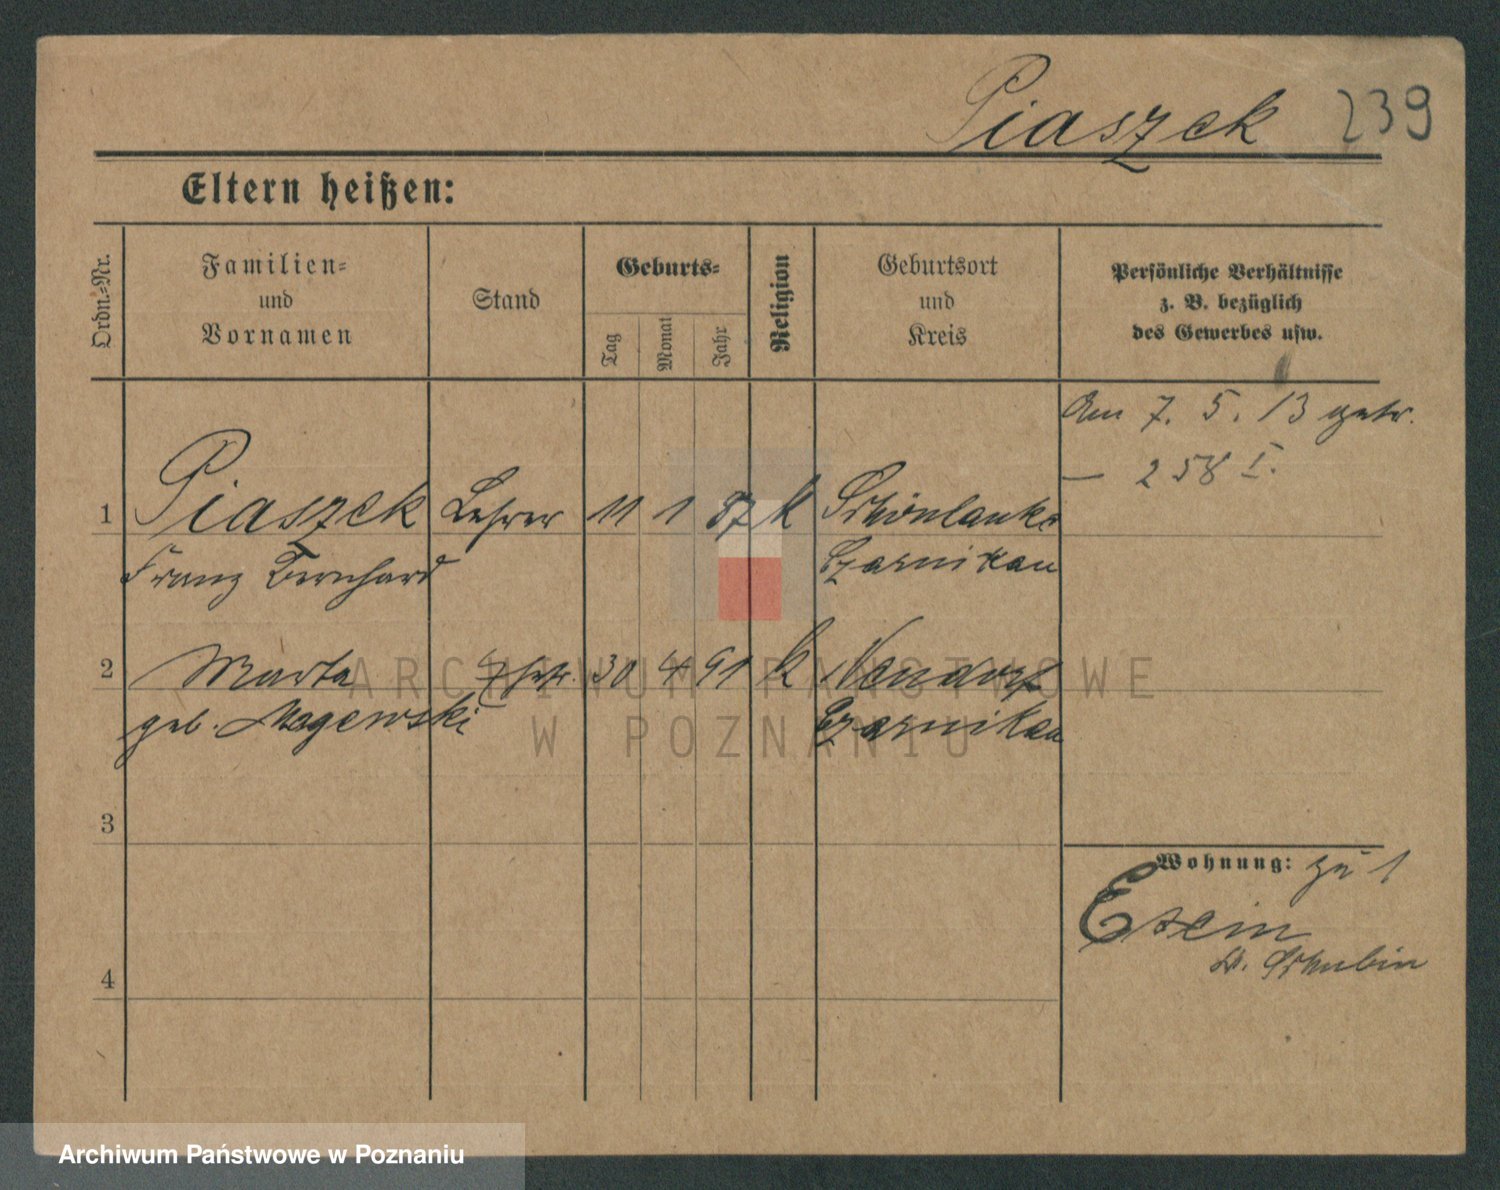 Piaszek 239
Eltern heißen:
Ordn.-Nr.
Familien-
und
Vornamen
Stand
Geburts-
Tag
Monat
Jahr
Religion
Geburtsort
und
Kreis
Persönliche Verhältnisse
z. B. bezüglich
des Gewerbes usw.
Am 7. 5. 13 getr.
— 258 I.
1 Piaszek Lehrer 11 1 87 k Schönlanke
Franz Bernhard Czarnikau
2 Marta 30 4 91 k Neudorf
geb. Magewski Czarnikau
3
4
Wohnung: zu 1
Exin
Kr. Schubin
ARCHIWUM PAŃSTWOWE
W POZNANIU
Archiwum Państwowe w Poznaniu